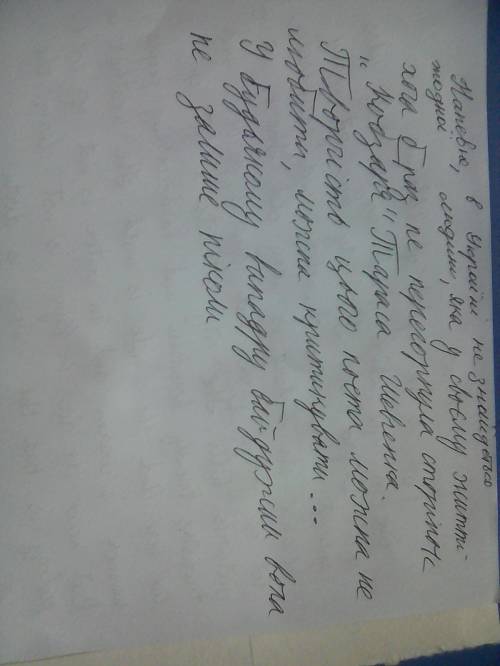 Напевно, в Україні не знайдеться
жодної людини, яка у своєму житті
хоча б раз не перегорнула сторінок
"Кобзаря" Тараса Шевченка.
Творчість цього поета можна не
любити, можна критикувати...
У будьякому випадку байдужим вона
не залише ніколи